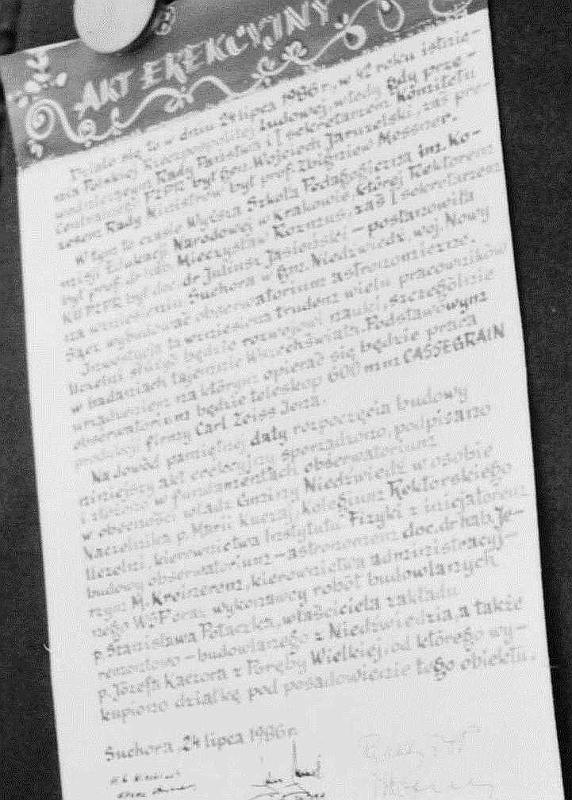 AKT EREKCYJNY
Działo się to w dniu 24 lipca 1986 r., w 42 roku istnie-
nia Polskiej Rzeczpospolitej Ludowej, wtedy gdy prze-
wodniczącym Rady Państwa i I sekretarzem Komitetu
Centralnego PZPR był gen. Wojciech Jaruzelski, zaś pre-
zesem Rady Ministrów był prof. Zbigniew Messner.
W tym to czasie Wyższa Szkoła Pedagogiczna im. Ko-
misji Edukacji Narodowej w Krakowie, której Rektorem
był prof. dr hab. Mieczysław Rozmus, zaś I sekretarzem
KU PZPR był doc. dr Juliusz Jasieński – postanowiła
na wzniesieniu Suchora w gm. Niedźwiedź woj. Nowy
Sącz wybudować obserwatorium astronomiczne.
Inwestycja ta wzniesiona trudem wielu pracowników
Uczelni służyć będzie rozwojowi nauki, szczególnie
w badaniach tajemnic Wszechświata. Podstawowym
urządzeniem na którym opierać się będzie praca
obserwatorium będzie teleskop 600 mm CASSEGRAIN
produkcji firmy Carl Zeiss Jena.
Na dowód pamiętnej daty rozpoczęcia budowy
niniejszy akt erekcyjny sporządzono, podpisano
i złożono w fundamentach obserwatorium
w obecności władz Gminy Niedźwiedź w osobie
Naczelnika p. Marii Kuczaj, Kolegium Rektorskiego
Uczelni, kierownictwa Instytutu Fizyki z inicjatorem
budowy obserwatorium – astronomem doc. dr hab. Je-
rzym M. Kreinerem, kierownictwa administracyj-
nego WSP oraz wykonawcy robót budowlanych
p. Stanisława Potaczka, właściciela zakładu
remontowo – budowlanego z Niedźwiedzia, a także
p. Józefa Kaczora z Poręby Wielkiej, od którego wy-
kupiono działkę pod posadowienie tego obiektu.
Suchora, 24 lipca 1986 r.